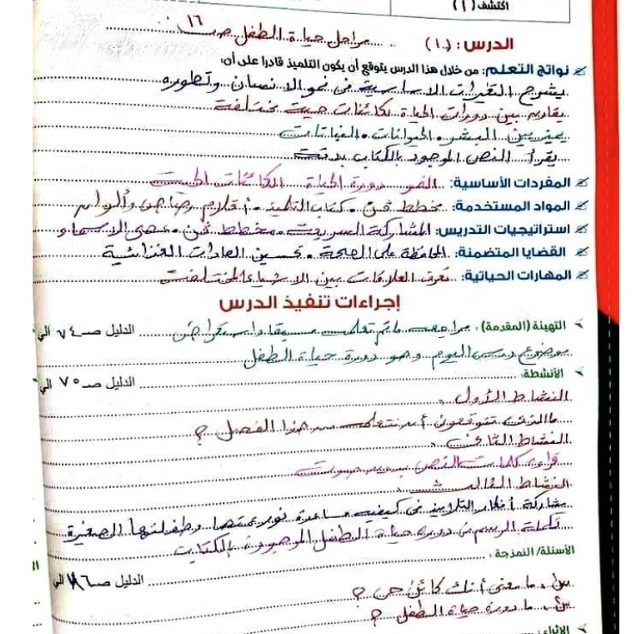 اكتشف (١)
الدرس : (١٠) مراحل حياة الطفل صـ ١٦
نواتج التعلم: من خلال هذا الدرس يتوقع أن يكون التلميذ قادرا على أن:
يشرح التغيرات الأساسية في نمو الإنسان وتطوره
يقارن بين دورات الحياة لكائنات حية مختلفة
يميز بين البشر . الحيوانات . النباتات
يقرأ النص الموجود بالكتاب بدقة
المفردات الأساسية: النمو دورة الحياة الكائنات الحية
المواد المستخدمة: مخطط فن . كتاب التلميذ . أقلام رصاص وألوان
استراتيجيات التدريس: المشاركة السريعة . مخطط فن . عصى الأسماء
القضايا المتضمنة: المحافظة على الصحة . تحسين العادات الغذائية
المهارات الحياتية: تعرف العلاقات بين الأشياء المختلفة
إجراءات تنفيذ الدرس
التهيئة (المقدمة) : مراجعة ما تم تعلمه سابقا واستعراض الدليل صـ ٧٤ الي
موضوع درس اليوم وهو دورة حياة الطفل
الأنشطة: الدليل صـ ٧٥ الي
النشاط الأول .
ما الذي تتوقعون أن نتعلمه من هذا الفصل ؟
النشاط الثاني .
قراءة كلمات النص بصوت
النشاط الثالث .
مشاركة أفكار التلاميذ في كيفية مساعدة وطفلتها الصغيرة
تكملة الرسم عن دورة حياة الطفل الموجودة بالكتاب
الأسئلة/ النمذجة : الدليل صـ الي
س١ . ما معنى أنك كائن حي ؟
س٢ . ما دورة حياة الطفل ؟
الإثراء: